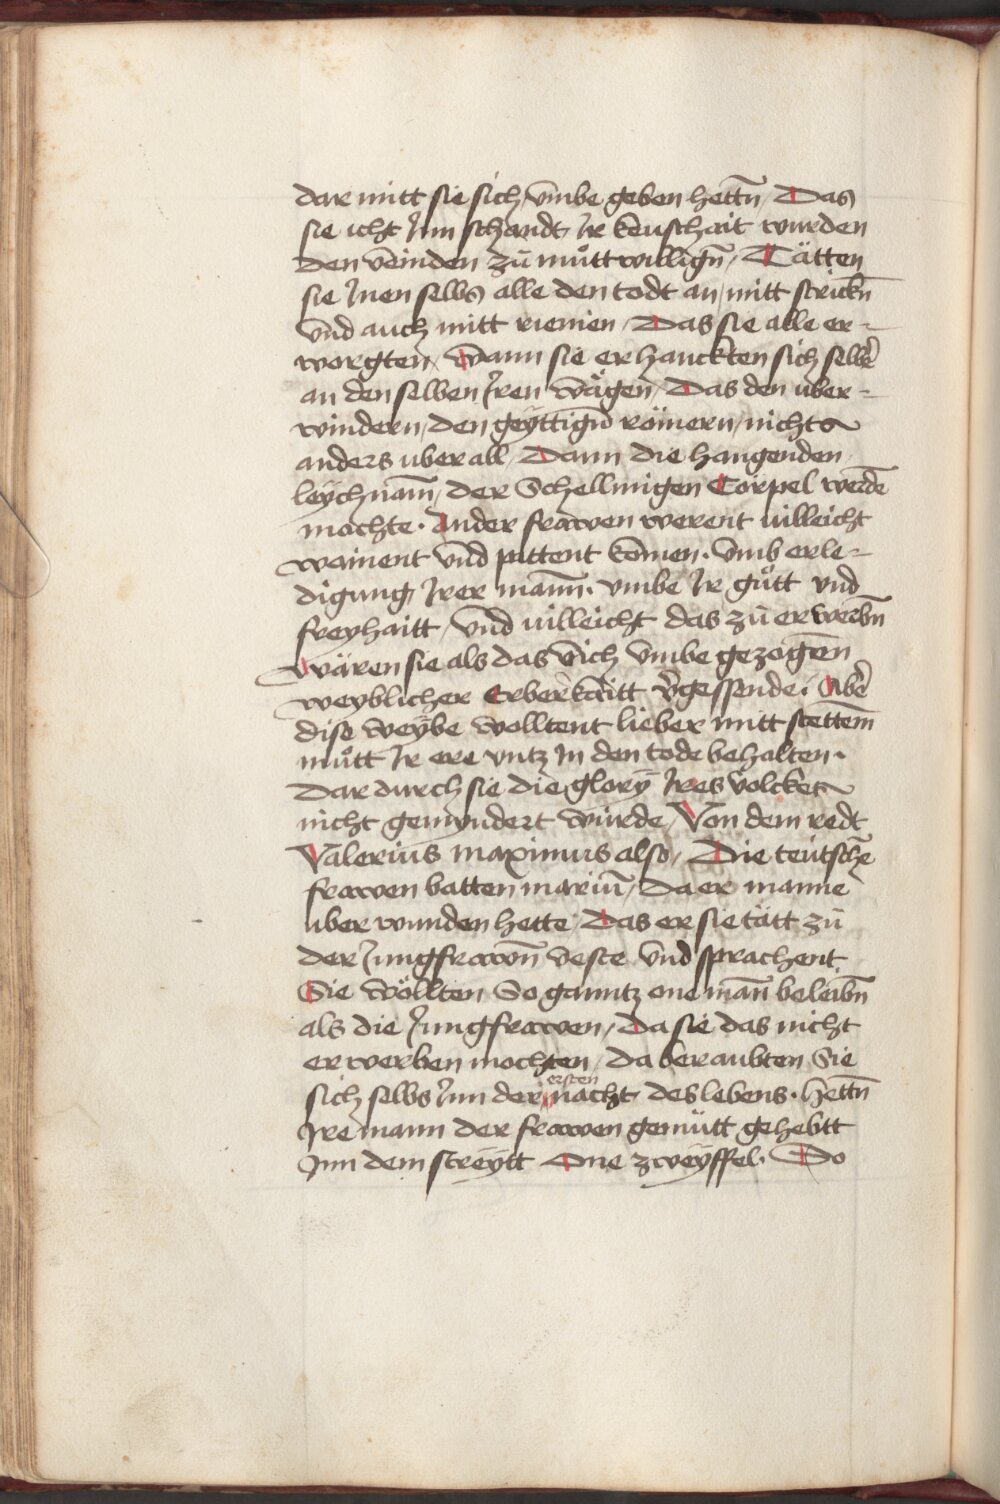 dar mitt sie sich vmbe geben hettn̄ / Das
sie icht Jnn schandt Jr keuschait wurden
den veinden zu͂ muͦttwillign̄ / Tätten
sie Jnen selbs alle den todt an / mitt strickn̄
vnd auch mitt riemen / Das sie alle er=
worgten / Wann sie erhanckten sich selb̄e
an den selben Jren wägen / Das den uber=
windern / den geyttign̄ römern / nichts
anders uberall / Dann die hangenden
leychnam̄ / der Schellmigen Cörpel werdē
mochte. Ander frawen werent uilleicht
wainent vnd pittent kōmen. vmb erle=
digung Jrer mann̄. vmbe Jr guͦtt vnd
freyhaitt / vnd uilleicht das zu͂ erwerbn̄
Wären sie als das vich vmbe gezogēn
weyblicher Erberkaitt v̄gessende. Ab̄e
dise weybe wolltent lieber mitt stettem̄
muͦtt Jr ere vntz Jn den tode behalten.
Dar durch sie die glory Jres volckes
nicht gemyndert wurde / Von dem redt
Valerius maximus also / Die teutschē
frawen batten mariu͂ / da er manne
uber wunden hette / Das er sie tätt zu͂
der Jungfrawn̄ veste vnd sprachent
Sie wöllten So ganntz one man̄ beleibn̄
als die Jungfrawen / Da sie das nicht
erwerben mochten / da beraubten Sie
sich selbs Jnn der ersten nacht des lebens. Hettn̄
Jre mann der frawen gemütt gehebtt
Jnn dem streytt One zweyffel. So